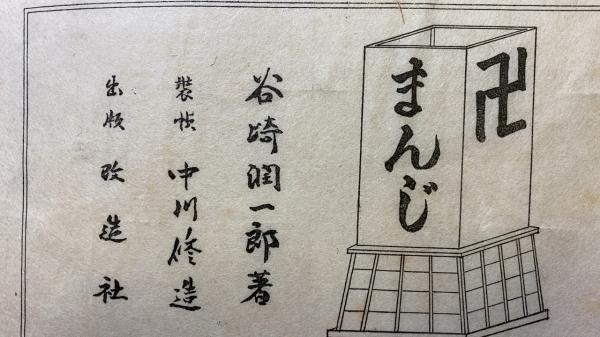 卍
まんじ
谷崎潤一郎著
装幀 中川修造
出版 改造社